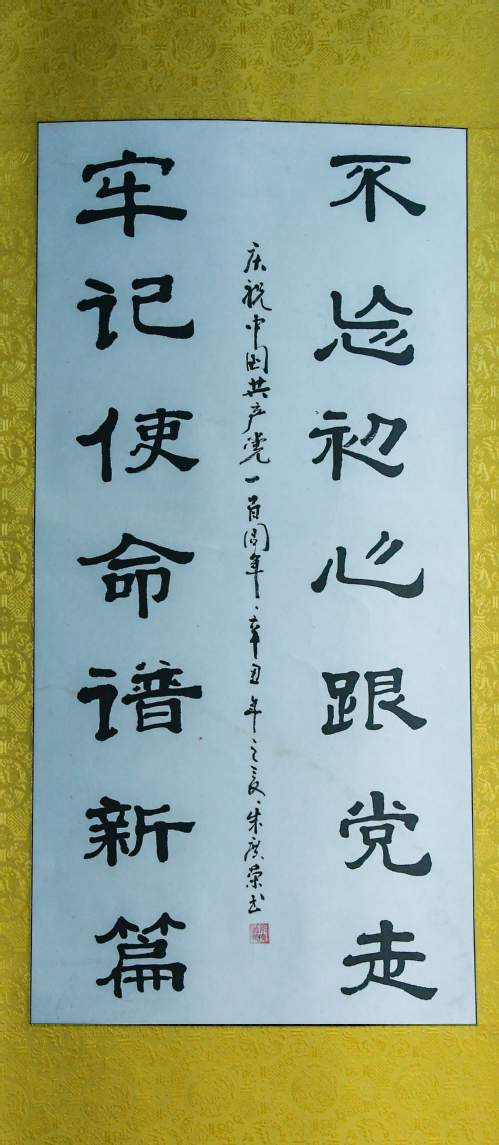 不忘初心跟党走
牢记使命谱新篇
庆祝中国共产党一百周年、辛丑年之夏、朱广荣书